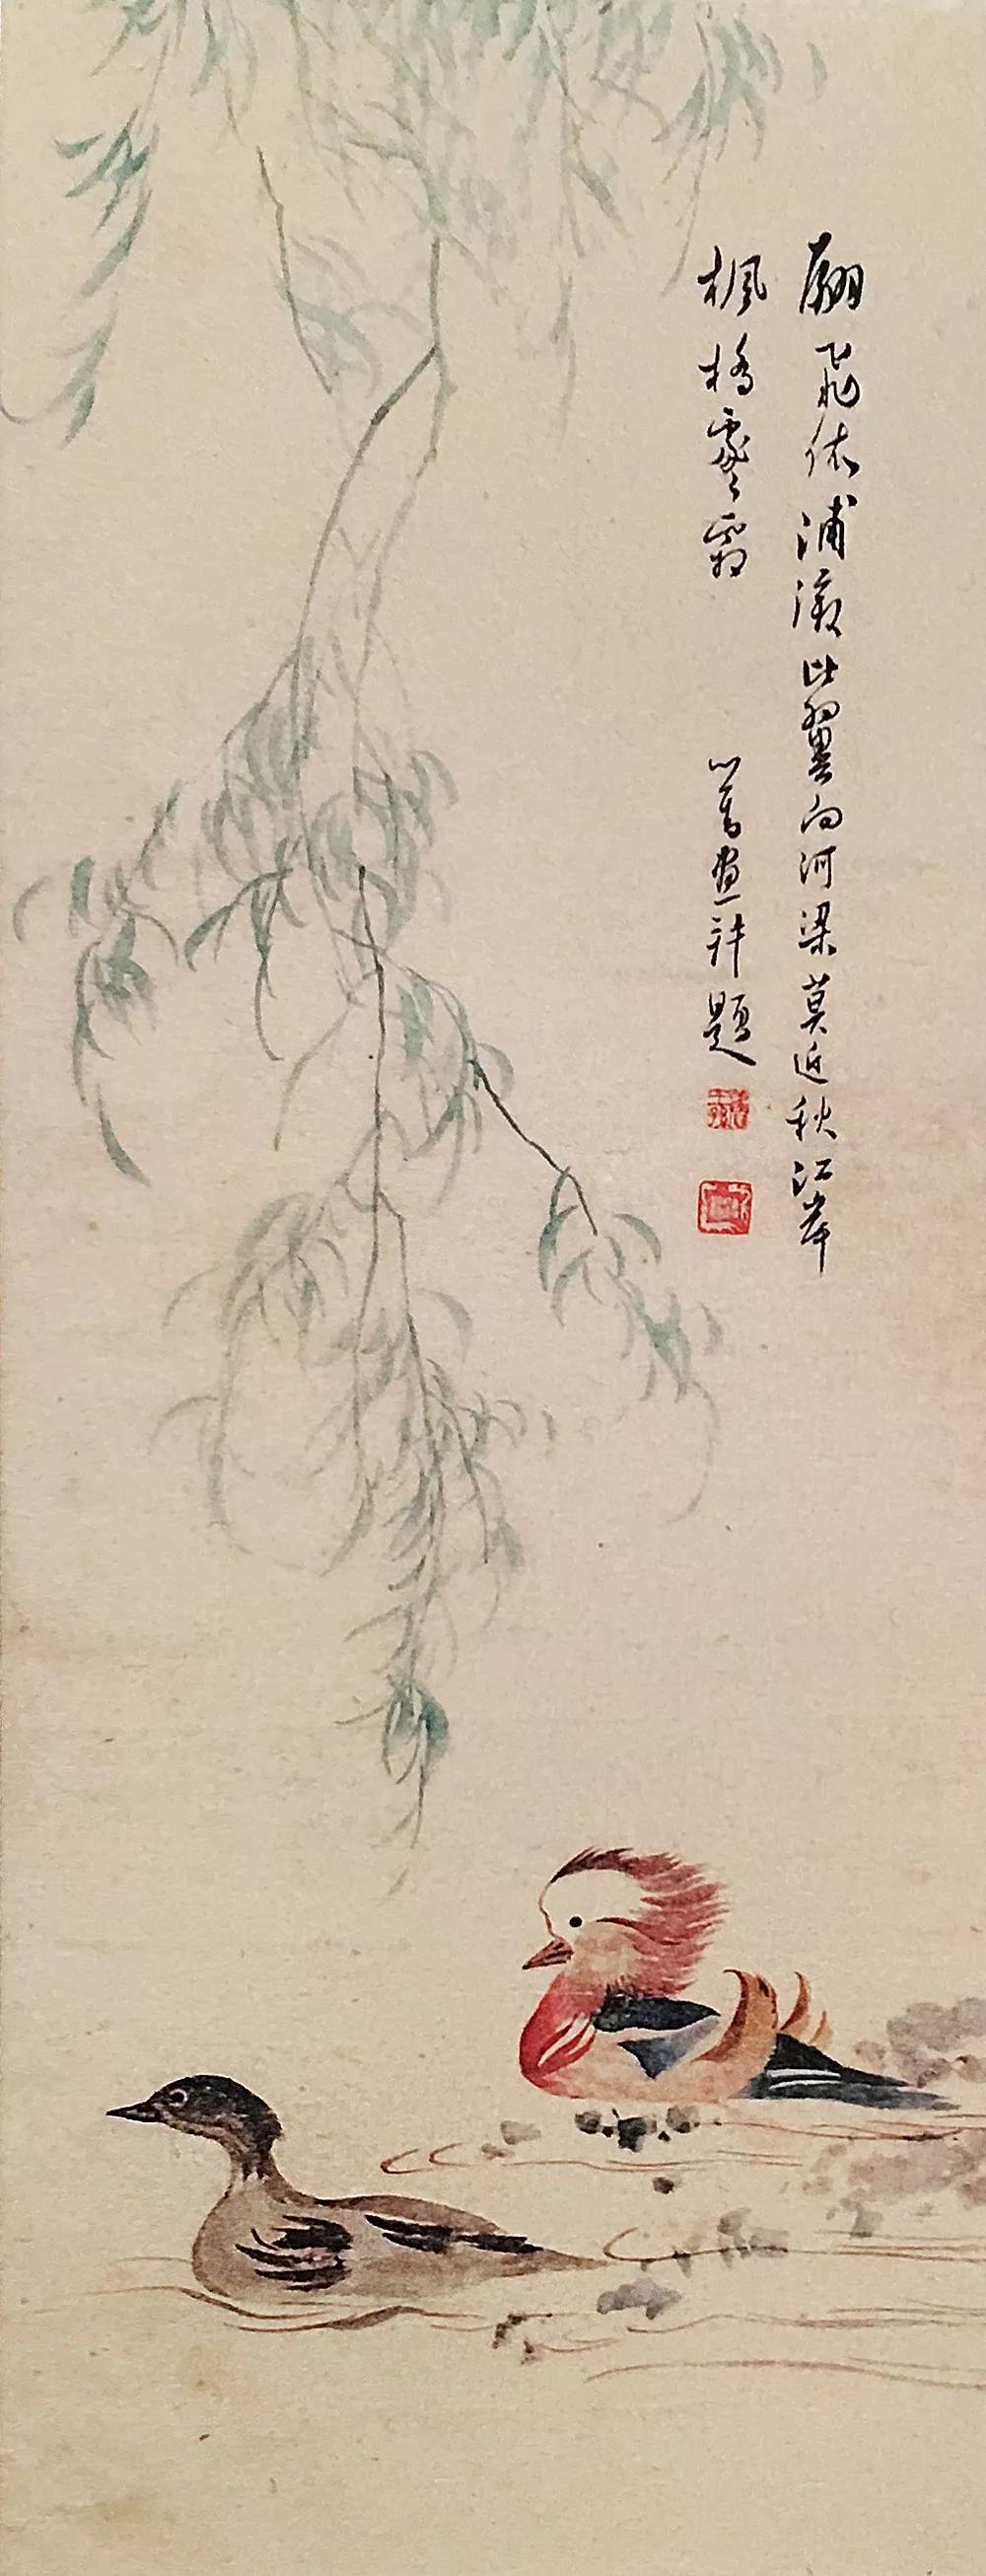 翩飛依浦漵比翼向河梁莫近秋江岸
楓橋處々霜 心畬畫并題